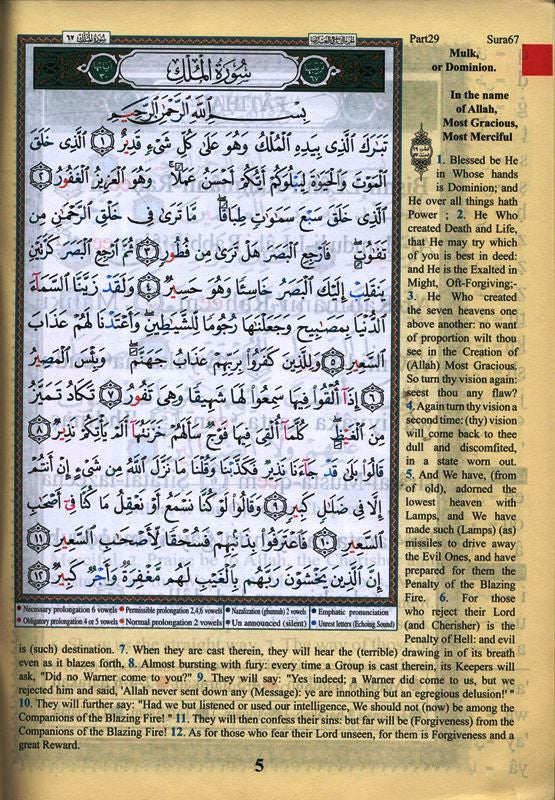 Part29 Sura67
سُورَةُ المُلْكِ ٦٧
سُورَةُ المُلْكِ
بِسْمِ اللَّهِ الرَّحْمَٰنِ الرَّحِيمِ
تَبَارَكَ الَّذِي بِيَدِهِ الْمُلْكُ وَهُوَ عَلَىٰ كُلِّ شَيْءٍ قَدِيرٌ ١ الَّذِي خَلَقَ
الْمَوْتَ وَالْحَيَاةَ لِيَبْلُوَكُمْ أَيُّكُمْ أَحْسَنُ عَمَلًا وَهُوَ الْعَزِيزُ الْغَفُورُ ٢
الَّذِي خَلَقَ سَبْعَ سَمَاوَاتٍ طِبَاقًا مَا تَرَىٰ فِي خَلْقِ الرَّحْمَٰنِ مِن
تَفَاوُتٍ فَارْجِعِ الْبَصَرَ هَلْ تَرَىٰ مِن فُطُورٍ ٣ ثُمَّ ارْجِعِ الْبَصَرَ كَرَّتَيْنِ
يَنقَلِبْ إِلَيْكَ الْبَصَرُ خَاسِئًا وَهُوَ حَسِيرٌ ٤ وَلَقَدْ زَيَّنَّا السَّمَاءَ
الدُّنْيَا بِمَصَابِيحَ وَجَعَلْنَاهَا رُجُومًا لِلشَّيَاطِينِ وَأَعْتَدْنَا لَهُمْ عَذَابَ
السَّعِيرِ ٥ وَلِلَّذِينَ كَفَرُوا بِرَبِّهِمْ عَذَابُ جَهَنَّمَ وَبِئْسَ الْمَصِيرُ
٦ إِذَا أُلْقُوا فِيهَا سَمِعُوا لَهَا شَهِيقًا وَهِيَ تَفُورُ ٧ تَكَادُ تَمَيَّزُ
مِنَ الْغَيْظِ كُلَّمَا أُلْقِيَ فِيهَا فَوْجٌ سَأَلَهُمْ خَزَنَتُهَا أَلَمْ يَأْتِكُمْ نَذِيرٌ ٨
قَالُوا بَلَىٰ قَدْ جَاءَنَا نَذِيرٌ فَكَذَّبْنَا وَقُلْنَا مَا نَزَّلَ اللَّهُ مِن شَيْءٍ إِنْ أَنتُمْ
إِلَّا فِي ضَلَالٍ كَبِيرٍ ٩ وَقَالُوا لَوْ كُنَّا نَسْمَعُ أَوْ نَعْقِلُ مَا كُنَّا فِي أَصْحَابِ
السَّعِيرِ ١٠ فَاعْتَرَفُوا بِذَنبِهِمْ فَسُحْقًا لِأَصْحَابِ السَّعِيرِ ١١
إِنَّ الَّذِينَ يَخْشَوْنَ رَبَّهُم بِالْغَيْبِ لَهُم مَغْفِرَةٌ وَأَجْرٌ كَبِيرٌ ١٢
Necessary prolongation 6 vowels Permissible prolongation 2,4,6 vowels Nazalization (ghunnah) 2 vowels Emphatic pronunciation
Obligatory prolongation 4 or 5 vowels Normal prolongation 2 vowels Un announced (silent) Unrest letters (Echoing Sound)
Mulk,
or Dominion.
In the name
of Allah,
Most Gracious,
Most Merciful
1. Blessed be He
in Whose hands
is Dominion; and
He over all things hath
Power ; 2. He Who
created Death and Life,
that He may try which
of you is best in deed:
and He is the Exalted in
Might, Oft-Forgiving;-
3. He Who created
the seven heavens one
above another: no want
of proportion wilt thou
see in the Creation of
(Allah) Most Gracious.
So turn thy vision again:
seest thou any flaw?
4. Again turn thy vision a
second time: (thy) vision
will come back to thee
dull and discomfited,
in a state worn out.
5. And We have, (from
of old), adorned the
lowest heaven with
Lamps, and We have
made such (Lamps) (as)
missiles to drive away
the Evil Ones, and have
prepared for them the
Penalty of the Blazing
Fire. 6. For those
who reject their Lord
(and Cherisher) is the
Penalty of Hell: and evil
is (such) destination. 7. When they are cast therein, they will hear the (terrible) drawing in of its breath
even as it blazes forth, 8. Almost bursting with fury: every time a Group is cast therein, its Keepers will
ask, "Did no Warner come to you?" 9. They will say: "Yes indeed; a Warner did come to us, but we
rejected him and said, 'Allah never sent down any (Message): ye are innothing but an egregious delusion!' "
10. They will further say: "Had we but listened or used our intelligence, We should not (now) be among the
Companions of the Blazing Fire! " 11. They will then confess their sins: but far will be (Forgiveness) from the
Companions of the Blazing Fire! 12. As for those who fear their Lord unseen, for them is Forgiveness and a
great Reward.
5